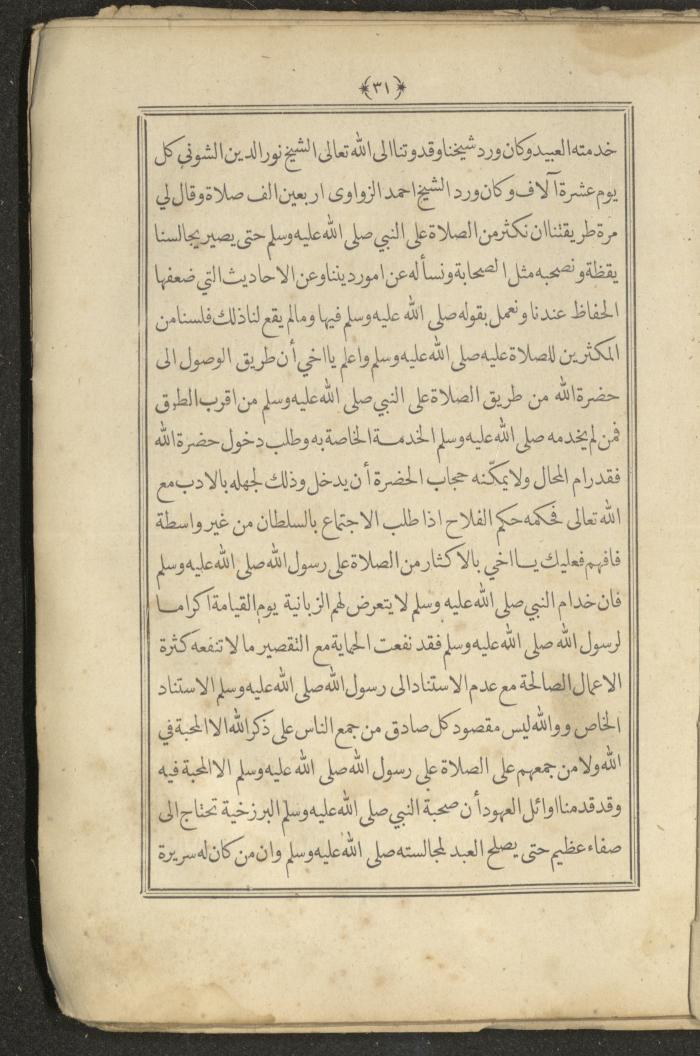 ﴿٣١﴾
خدمته العبيد وكان ورد شيخنا وقدوتنا الى الله تعالى الشيخ نور الدين الشوني كل
يوم عشرة آلاف وكان ورد الشيخ احمد الزواوى اربعين الف صلاة وقال لي
مرة طريقتنا ان نكثر من الصلاة على النبي صلى الله عليه وسلم حتى يصير يجالسنا
يقظة ونصحبه مثل الصحابة ونسأله عن امور ديننا وعن الاحاديث التي ضعفها
الحفاظ عندنا ونعمل بقوله صلى الله عليه وسلم فيها وما لم يقع لنا ذلك فلسنا من
المكثرين للصلاة عليه صلى الله عليه وسلم واعلم يا اخي أن طريق الوصول الى
حضرة الله من طريق الصلاة على النبي صلى الله عليه وسلم من اقرب الطرق
فمن لم يخدمه صلى الله عليه وسلم الخدمة الخاصة به وطلب دخول حضرة الله
فقد رام المحال ولا يمكّنه حجاب الحضرة أن يدخل وذلك لجهله بالادب مع
الله تعالى فحكمه حكم الفلاح اذا طلب الاجتماع بالسلطان من غير واسطة
فافهم فعليك يا اخي بالاكثار من الصلاة على رسول الله صلى الله عليه وسلم
فان خدام النبي صلى الله عليه وسلم لا يتعرض لهم الزبانية يوم القيامة اكراما
لرسول الله صلى الله عليه وسلم فقد نفعت الحماية مع التقصير ما لا تنفعه كثرة
الاعمال الصالحة مع عدم الاستناد الى رسول الله صلى الله عليه وسلم الاستناد
الخاص ووالله ليس مقصود كل صادق من جمع الناس على ذكر الله الا المحبة في
الله ولا من جمعهم على الصلاة على رسول الله صلى الله عليه وسلم الا المحبة فيه
وقد قدمنا اوائل العهود أن صحبة النبي صلى الله عليه وسلم البرزخية تحتاج الى
صفاء عظيم حتى يصلح العبد لمجالسته صلى الله عليه وسلم وان من كان له سريرة